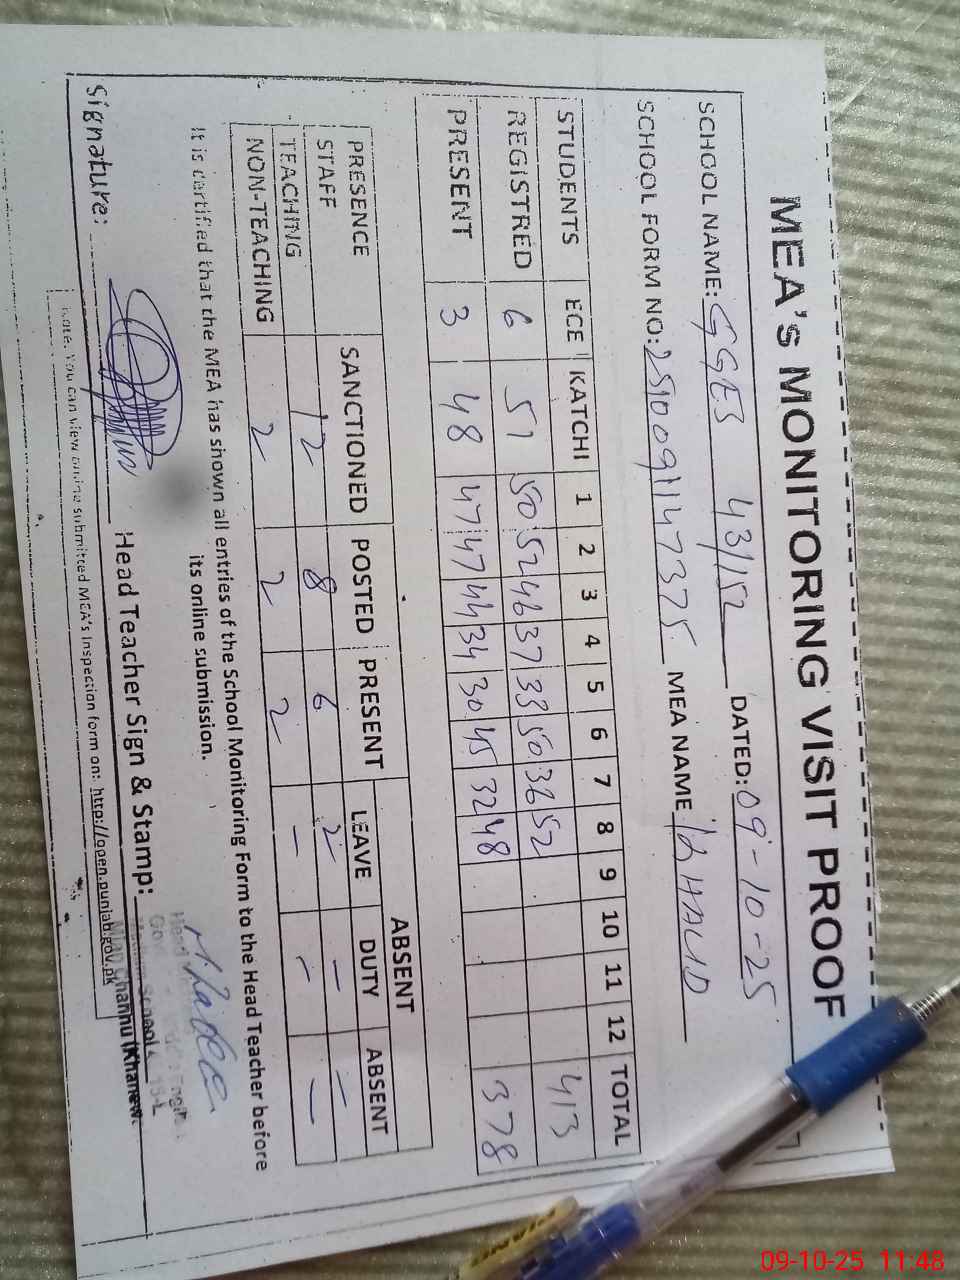 MEA's MONITORING VISIT PROOF
SCHOOL NAME: GGES 43/15L DATED: 09-10-25
SCHOOL FORM NO: 2510091147375 MEA NAME
STUDENTS ECE KATCHI 1 2 3 4 5 6 7 8 9 10 11 12 TOTAL
REGISTRED 6 51 50 52 46 37 33 50 36 52 413
PRESENT 3 48 47 47 44 34 30 45 32 48 378
PRESENCE SANCTIONED POSTED PRESENT ABSENT
STAFF LEAVE DUTY ABSENT
TEACHING 12 8 6 2 - -
NON-TEACHING 2 2 2 - - -
It is certified that the MEA has shown all entries of the School Monitoring Form to the Head Teacher before
its online submission.
Signature: Head Teacher Sign & Stamp:
Note: You can view online submitted MEA's Inspection form on: http://open.punjab.gov.pk
Mian Channu (Khanew
09-10-25 11:48